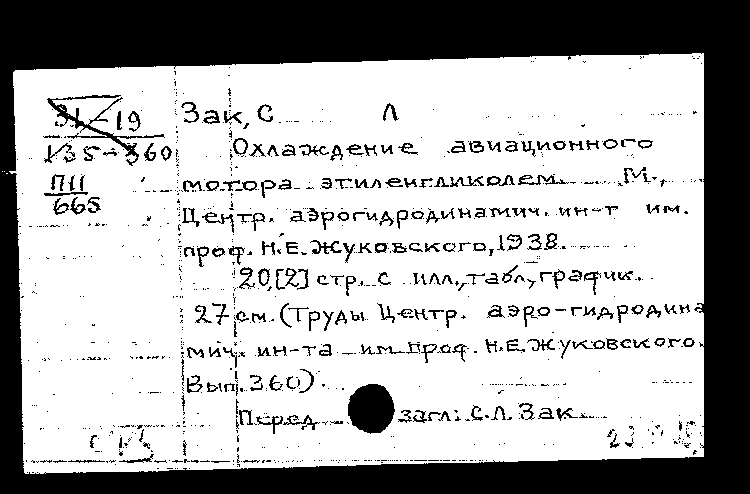 31-19
135-360
П11
665
Зак, С Л
Охлаждение авиационного
мотора этиленгликолем. М.,
Центр. аэрогидродинамич. ин-т им.
проф. Н.Е. Жуковского, 1938.
20,[2] стр. с илл., табл., график.
27 см. (Труды Центр. аэро-гидродина
мич. ин-та им. проф. Н.Е. Жуковского.
Вып. 360).
Перед загл: С.Л. Зак.